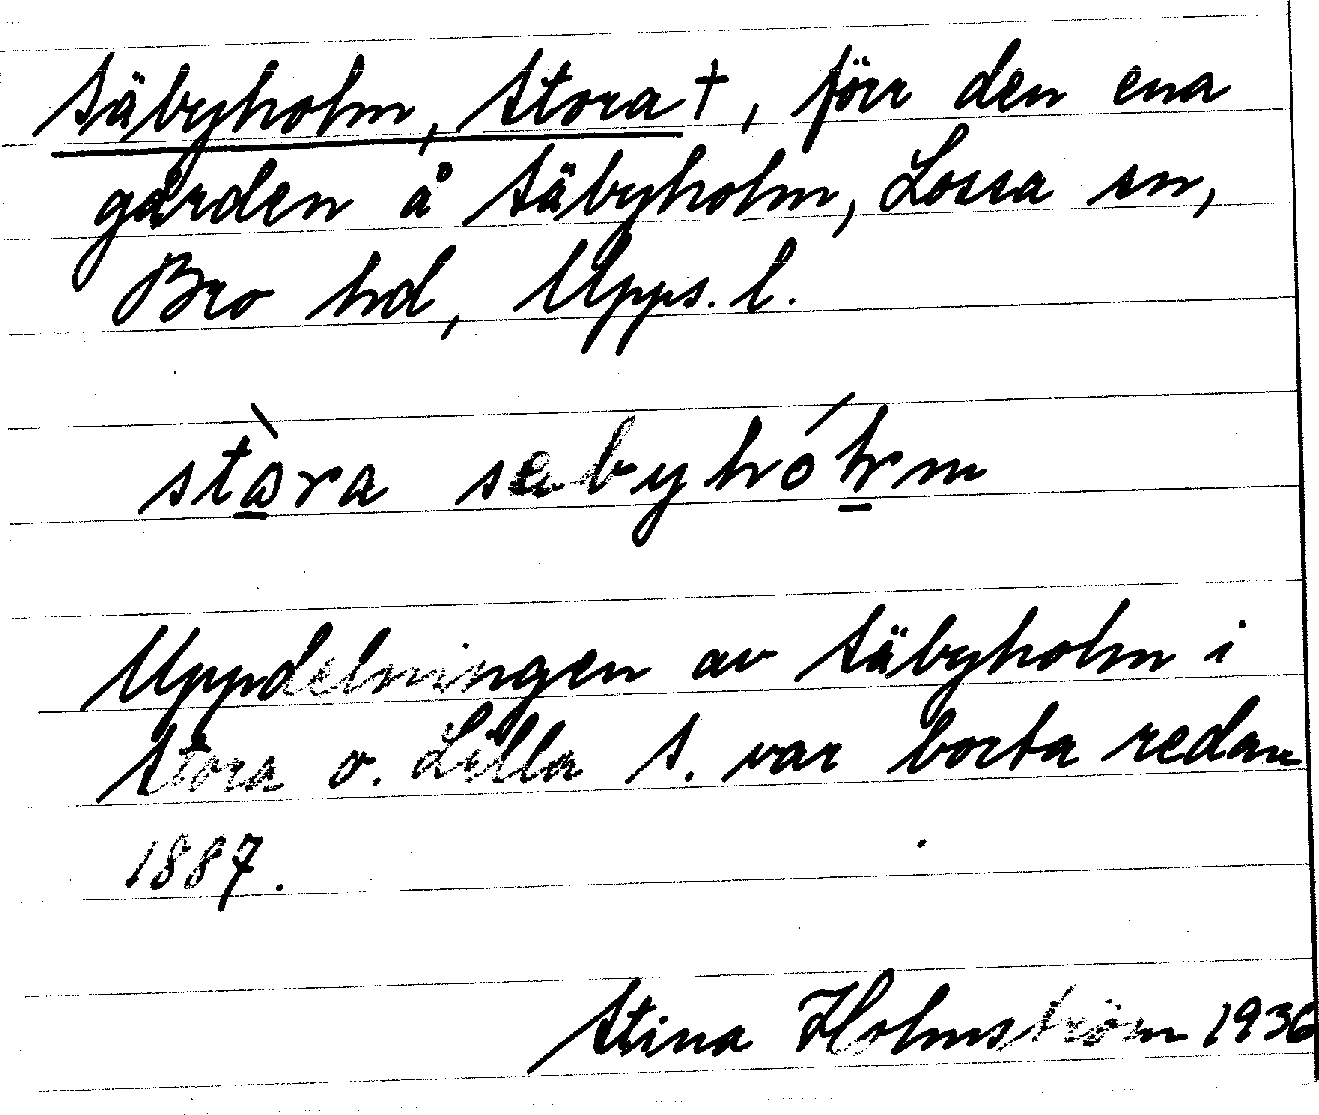 Säbyholm, Stora †, förr den ena
gården å Säbyholm, Lossa sn,
Bro hd, Upps. l.
Uppdelningen av Säbyholm i
Stora o. Lilla S. var borta redan
1887.
Stina Holmström 1936